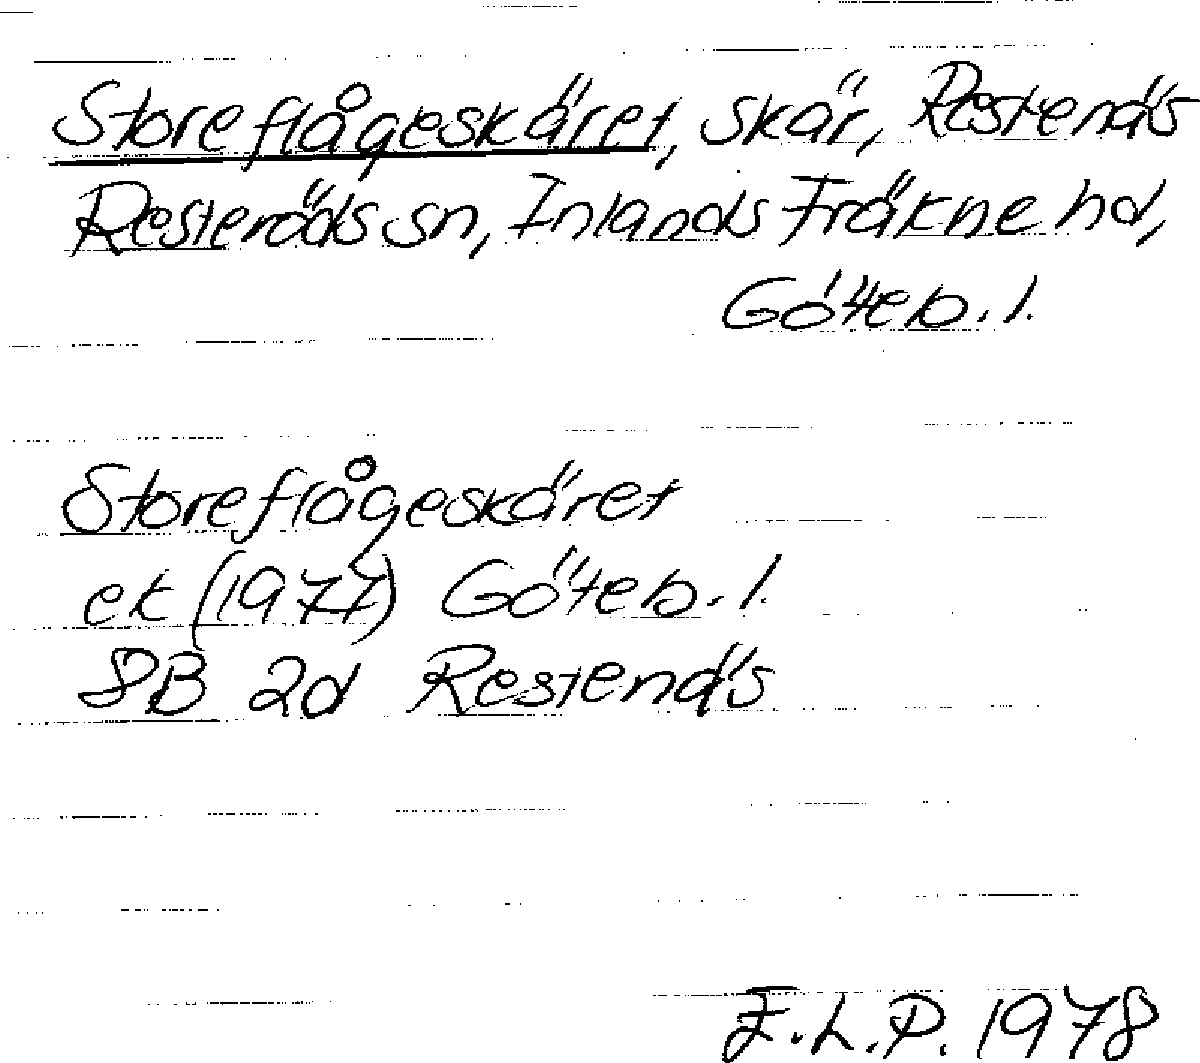 Storeflågeskäret, skär, Restenäs
Resteröds sn, Inlands Fräkne hd,
Göteb. l.
Storeflågeskäret
ek (1977) Göteb. l.
8B 2d Restenäs
F.L.P. 1978